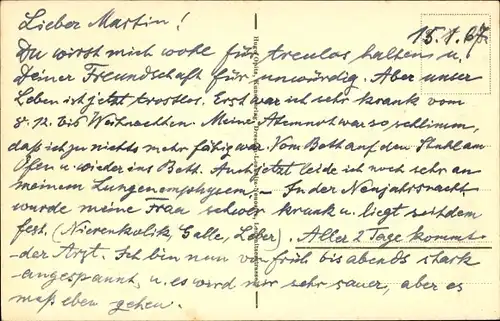 Lieber Martin!
15.1.67.
Du wirst mich wohl für treulos halten u.
Deiner Freundschaft für unwürdig. Aber unser
Leben ist jetzt trostlos. Erst war ich sehr krank vom
8.12. bis Weihnachten. Meine Atemnot war so schlimm,
daß ich zu nichts mehr fähig war. Vom Bett auf den Stuhl am
Ofen u. wieder ins Bett. Auch jetzt leide ich noch sehr an
meinem Lungenemphysem. – In der Neujahrsnacht
wurde meine Frau schwer krank u. liegt seitdem
fest. (Nierenkolik, Galle, Leber). Aller 2 Tage kommt
der Arzt. Ich bin nun von früh bis abends stark
angespannt, u. es wird mir sehr sauer, aber es
muß eben gehen.